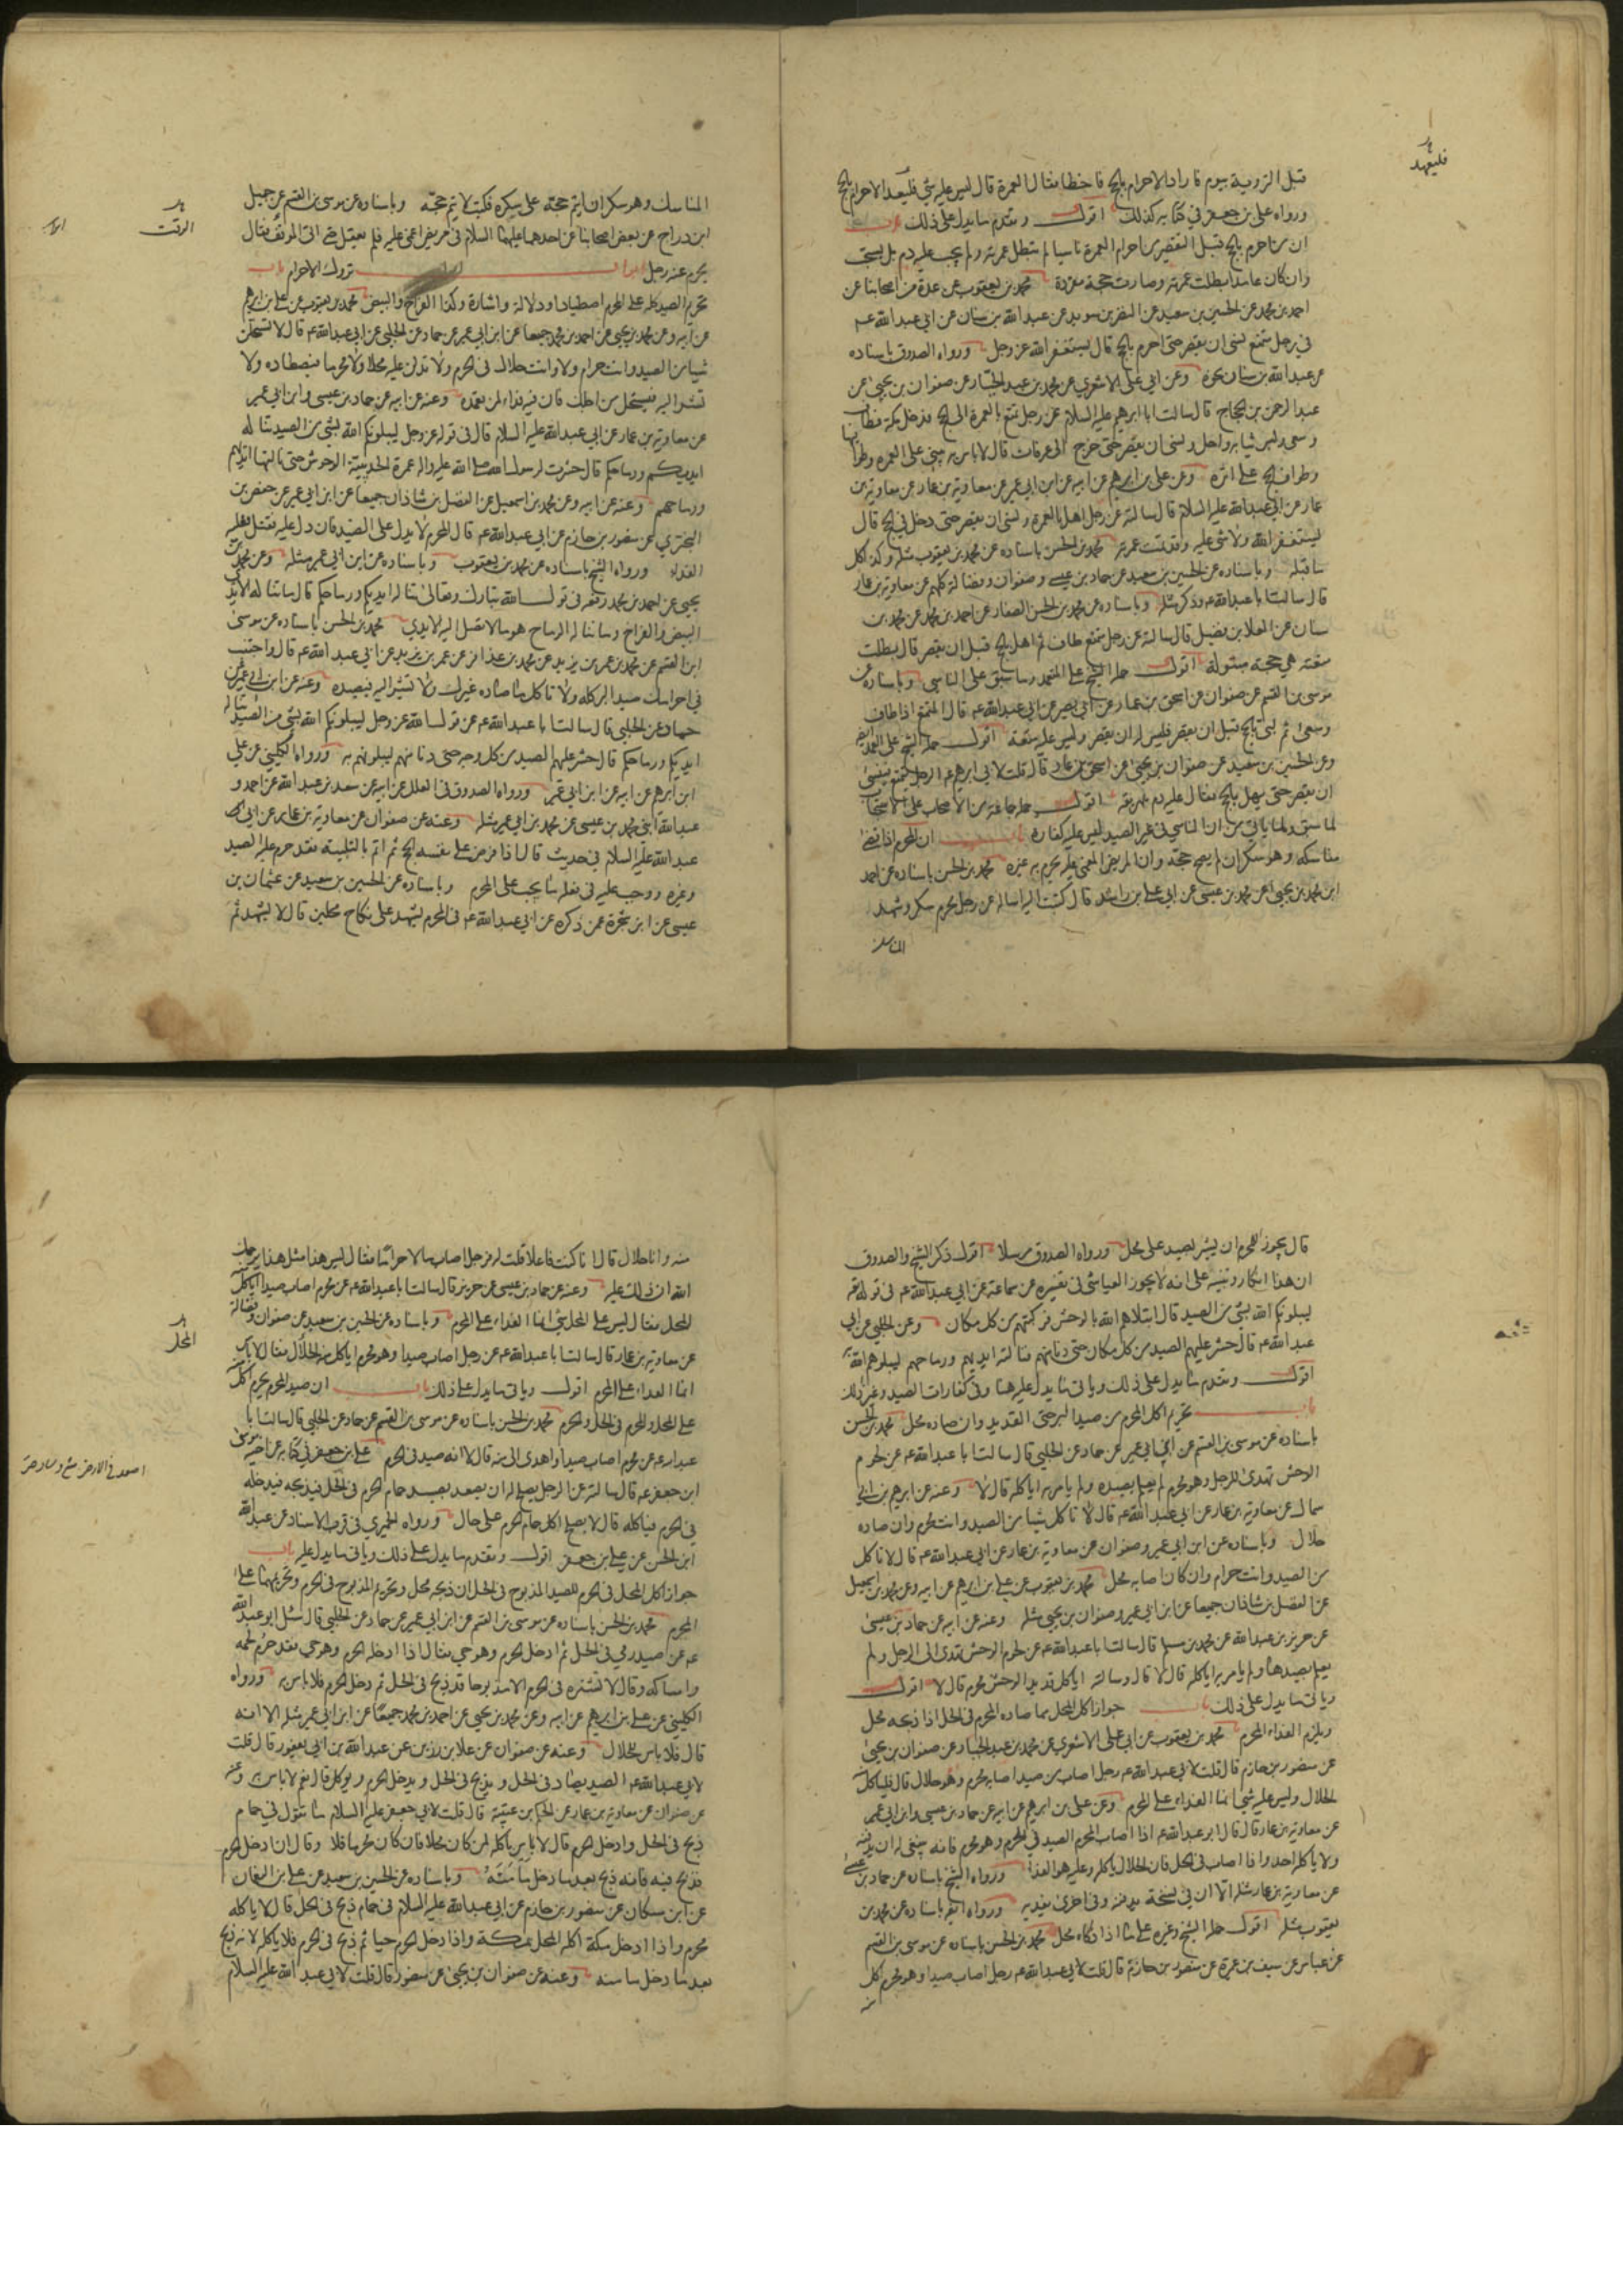 قبل التروية بيوم فاراد الاحرام بالحج فاخطا فقال العمرة قال ليس عليه شئ فليعد الاحرام بالحج
ورواه علي بن جعفر في كتابه كذلك اقول وتقدم ما يدل على ذلك باب
ان من احرم بالحج قبل التقصير من احرام العمرة ناسيا لم تبطل عمرته ولم يجب عليه دم بل يستحب
وان كان عامدا بطلت عمرته وصارت حجة مفردة محمد بن يعقوب عن عدة من اصحابنا عن
احمد بن محمد عن الحسين بن سعيد عن النضر بن سويد عن عبد الله بن سنان عن ابي عبد الله ع
في رجل متمتع نسى ان يقصر حتى احرم بالحج قال يستغفر الله عز وجل ورواه الصدوق باسناده
عن عبد الله بن سنان نحوه وعن ابي علي الاشعري عن محمد بن عبد الجبار عن صفوان بن يحيى عن
عبد الرحمن بن الحجاج قال سالت ابا ابرهيم عليه السلام عن رجل تمتع بالعمرة الى الحج فدخل مكة فطاف
وسعى ولبس ثيابه واحل ونسى ان يقصر حتى خرج الى عرفات قال لا باس به يبنى على العمرة وطوافها
وطواف الحج على اثره وعن علي بن ابرهيم عن ابيه عن ابن ابي عمير عن معاوية بن عمار عن معاوية بن
عمار عن ابي عبد الله عليه السلام قال سالته عن رجل اهل بالعمرة ونسى ان يقصر حتى دخل في الحج قال
يستغفر الله ولا شئ عليه وقد تمت عمرته محمد بن الحسن باسناده عن محمد بن يعقوب مثله وكذا كل
ما قبله وباسناده عن الحسين بن سعيد عن حماد بن عيسى وصفوان وفضالة كلهم عن معاوية بن عمار
قال سالت ابا عبد الله ع وذكر مثله وباسناده عن محمد بن الحسن الصفار عن احمد بن محمد عن محمد بن
سنان عن العلا بن فضيل قال سالته عن رجل متمتع طاف ثم اهل بالحج قبل ان يقصر قال بطلت
متعته هي حجة مبتولة اقول حمله الشيخ على المتعمد وما سبق على الناسي وباسناده عن
موسى بن القسم عن صفوان عن اسحق بن عمار عن ابي بصير عن ابي عبد الله ع قال المتمتع اذا طاف
وسعى ثم لبى بالحج قبل ان يقصر فليس له ان يقصر وليس عليه متعة اقول حمله الشيخ على العمد ايضا
وعن الحسين بن سعيد عن صفوان بن يحيى عن اسحق بن عمار قال قلت لابي ابرهيم ع الرجل يتمتع فينسى
ان يقصر حتى يهل بالحج فقال عليه دم يهريقه اقول حمله جماعة من الاصحاب على الاستحباب
لما سبق ولما ياتي من ان الناسي في غير الصيد ليس عليه كفارة باب ان المحرم اذا قضى
مناسكه وهو سكران لم يصح حجه وان المريض المغمى عليه يحرم به غيره محمد بن الحسن باسناده عن احمد
ابن محمد بن يحيى عن محمد بن عيسى عن ابي علي بن راشد قال كتبت اليه اساله عن رجل محرم سكر وشهد
المناسك
المناسك وهو سكران ايتم حجه على سكره فكتب لا يتم حجه وباسناده عن موسى بن القسم عن جميل
ابن دراج عن بعض اصحابنا عن احدهما عليهما السلام في مريض اغمي عليه فلم يعقل حتى اتى الموقف فقال
يحرم عنه رجل ابواب تروك الاحرام باب
تحريم الصيد كله على المحرم اصطيادا ودلالة واشارة وكذا الفراخ والبيض محمد بن يعقوب عن علي بن ابرهيم
عن ابيه وعن محمد بن يحيى عن احمد بن محمد جميعا عن ابن ابي عمير عن حماد عن الحلبي عن ابي عبد الله ع قال لا تستحلن
شيئا من الصيد وانت حرام ولا وانت حلال في الحرم ولا تدلن عليه محلا ولا محرما فيصطاده ولا
تشر اليه فيستحل من اجلك فان فيه فداء لمن تعمده وعنه عن ابيه عن حماد بن عيسى وابن ابي عمير
عن معاوية بن عمار عن ابي عبد الله عليه السلام قال في قوله عز وجل ليبلونكم الله بشئ من الصيد تناله
ايديكم ورماحكم قال حشرت لرسول الله صلى الله عليه واله في عمرة الحديبية الوحوش حتى نالتها ايديهم
ورماحهم وعنه عن ابيه وعن محمد بن اسمعيل عن الفضل بن شاذان جميعا عن ابن ابي عمير عن حفص بن
البختري عن منصور بن حازم عن ابي عبد الله ع قال المحرم لا يدل على الصيد فان دل عليه فقتل فعليه
الفداء ورواه الشيخ باسناده عن محمد بن يعقوب وباسناده عن ابن ابي عمير مثله وعن محمد بن
يحيى عن احمد بن محمد رفعه في قول الله تبارك وتعالى تناله ايديكم ورماحكم قال ما تناله الايدي
البيض والفراخ وما تناله الرماح فهو ما لا تصل اليه الايدي محمد بن الحسن باسناده عن موسى
ابن القسم عن محمد بن عمر بن يزيد عن محمد بن عذافر عن عمر بن يزيد عن ابي عبد الله ع قال واجتنب
في احرامك صيد البر كله ولا تاكل مما صاده غيرك ولا تشر اليه فيصيده وعنه عن ابن ابي عمير عن
حماد عن الحلبي قال سالت ابا عبد الله ع عن قول الله عز وجل ليبلونكم الله بشئ من الصيد تناله
ايديكم ورماحكم قال حشر عليهم الصيد من كل وجه حتى دنا منهم ليبلونهم به ورواه الكليني عن علي
ابن ابرهيم عن ابيه عن ابن ابي عمير ورواه الصدوق في العلل عن ابيه عن سعد بن عبد الله عن احمد و
عبد الله ابني محمد بن عيسى عن محمد بن ابي عمير مثله وعنه عن صفوان عن معاوية بن عمار عن ابي
عبد الله عليه السلام في حديث قال اذا فرض على نفسه الحج ثم اتم بالتلبية فقد حرم عليه الصيد
وغيره ووجب عليه في فعله ما يجب على المحرم وباسناده عن الحسين بن سعيد عن عثمان بن
عيسى عن ابن شجرة عمن ذكره عن ابي عبد الله ع في المحرم يشهد على نكاح محلين قال لا يشهد ثم
الوقت
قال يجوز للمحرم ان يشير بصيد على محل ورواه الصدوق مرسلا اقول ذكر الشيخ والصدوق
ان هذا انكار وتنبيه على انه لا يجوز العياشي في تفسيره عن سماعة عن ابي عبد الله ع في قوله تعالى
ليبلونكم الله بشئ من الصيد قال ابتلاهم الله بالوحش فركبتهم من كل مكان وعن الحلبي عن ابي
عبد الله ع قال حشر عليهم الصيد من كل مكان حتى دنا منهم فنالته ايديهم ورماحهم ليبلوهم الله به
اقول وتقدم ما يدل على ذلك وياتي ما يدل عليه هنا وفي كفارات الصيد وغير ذلك
باب تحريم اكل المحرم من صيد البر حتى القديد وان صاده محل محمد بن الحسن
باسناده عن موسى بن القسم عن ابن ابي عمير عن حماد عن الحلبي قال سالت ابا عبد الله ع عن لحوم
الوحش تهدى للرجل وهو محرم لم يعلم بصيده ولم يامر به اياكله قال لا وعنه عن ابرهيم بن ابي
سمال عن معاوية بن عمار عن ابي عبد الله ع قال لا تاكل شيئا من الصيد وانت محرم وان صاده
حلال وباسناده عن ابن ابي عمير وصفوان عن معاوية بن عمار عن ابي عبد الله ع قال لا تاكل
من الصيد وانت حرام وان كان اصابه محل محمد بن يعقوب عن علي بن ابرهيم عن ابيه وعن محمد بن اسمعيل
عن الفضل بن شاذان جميعا عن ابن ابي عمير وصفوان بن يحيى مثله وعنه عن ابيه عن حماد بن عيسى
عن حريز بن عبد الله عن محمد بن مسلم قال سالت ابا عبد الله ع عن لحوم الوحش تهدى الى الرجل ولم
يعلم بصيدها ولم يامر به اياكله قال لا قال وسالته اياكل قديد الوحش محرم قال لا اقول
وياتي ما يدل على ذلك باب جواز اكل المحل مما صاده المحرم في الحل اذا ذبحه محل
ويلزم الفداء المحرم محمد بن يعقوب عن ابي علي الاشعري عن محمد بن عبد الجبار عن صفوان بن يحيى
عن منصور بن حازم قال قلت لابي عبد الله ع رجل اصاب من صيد اصابه محرم وهو حلال قال فلياكل منه
الحلال وليس عليه شئ انما الفداء على المحرم وعن علي بن ابرهيم عن ابيه عن حماد بن عيسى وابن ابي عمير
عن معاوية بن عمار قال قال ابو عبد الله ع اذا اصاب المحرم الصيد في الحرم وهو محرم فانه ينبغي له ان يدفنه
ولا ياكله احد واذا اصاب في الحل فان الحلال ياكله وعليه هو الفداء ورواه الشيخ باسناده عن حماد بن عيسى
عن معاوية بن عمار مثله الا ان في نسخة يدفنه وفي اخرى يفديه ورواه ايضا باسناده عن محمد بن
يعقوب مثله اقول حمله الشيخ وغيره على ما اذا ذكاه محل محمد بن الحسن باسناده عن موسى بن القسم
عن عباس عن سيف بن عميرة عن منصور بن حازم قال قلت لابي عبد الله ع رجل اصاب صيدا وهو محرم اكل
منه
منه وانا حلال قال انا كنت فاعلا قلت له فرجل اصاب مالا حراما فقال ليس هذا مثل هذا يرحمك
الله ان ذلك عليه وعنه عن حماد بن عيسى عن حريز قال سالت ابا عبد الله ع عن محرم اصاب صيدا اياكل منه
المحل فقال ليس على المحل شئ انما الفداء على المحرم وباسناده عن الحسين بن سعيد عن صفوان وفضالة
عن معاوية بن عمار قال سالت ابا عبد الله ع عن رجل اصاب صيدا وهو محرم اياكل منه الحلال فقال لا باس
انما الفداء على المحرم اقول وياتي ما يدل على ذلك باب ان صيد الحرم يحرم اكله
على المحل والمحرم في الحل والحرم محمد بن الحسن باسناده عن موسى بن القسم عن حماد عن الحلبي قال سالت ابا
عبد الله ع عن محرم اصاب صيدا واهدى الى منه قال لا انه صيد في الحرم علي بن جعفر في كتابه عن اخيه موسى
ابن جعفر ع قال سالته عن الرجل يصلح له ان يصعد بصيد حمام الحرم في الحل فيذبحه فيدخله
في الحرم فياكله قال لا يصلح اكل حمام الحرم على حال ورواه الحميري في قرب الاسناد عن عبد الله
ابن الحسن عن علي بن جعفر اقول وتقدم ما يدل على ذلك وياتي ما يدل عليه باب
جواز اكل المحل في الحرم للصيد المذبوح في الحل ان ذبحه محل وتحريم المذبوح في الحرم وتحريمهما على
المحرم محمد بن الحسن باسناده عن موسى بن القسم عن ابن ابي عمير عن حماد عن الحلبي قال سئل ابو عبد الله
ع عن صيد رمي في الحل ثم ادخل الحرم وهو حي فقال اذا ادخله الحرم وهو حي فقد حرم لحمه
وامساكه وقال لا تشتره في الحرم الا مذبوحا قد ذبح في الحل ثم دخل الحرم فلا باس به ورواه
الكليني عن علي بن ابرهيم عن ابيه وعن محمد بن يحيى عن احمد بن محمد جميعا عن ابن ابي عمير مثله الا انه
قال فلا باس للحلال وعنه عن صفوان عن علا بن رزين عن عبد الله بن ابي يعفور قال قلت
لابي عبد الله ع الصيد يصاد في الحل و يذبح في الحل و يدخل الحرم ويؤكل قال نعم لا باس به وعنه
عن صفوان عن معاوية بن عمار عن الحكم بن عتيبة قال قلت لابي جعفر عليه السلام ما تقول في حمام
ذبح في الحل وادخل الحرم قال لا باس باكله لمن كان محلا فان كان محرما فلا وقال ان ادخل الحرم
فذبح فيه فانه ذبح بعد ما دخل مامنه وباسناده عن الحسين بن سعيد عن علي بن النعمان
عن ابن مسكان عن منصور بن حازم عن ابي عبد الله عليه السلام في حمام ذبح في الحل قال لا ياكله
محرم واذا ادخل مكة اكله المحل بمكة واذا دخل الحرم حيا ثم ذبح في الحرم فلا ياكله لانه ذبح
بعد ما دخل مامنه وعنه عن صفوان بن يحيى عن منصور قال قلت لابي عبد الله عليه السلام
المحل